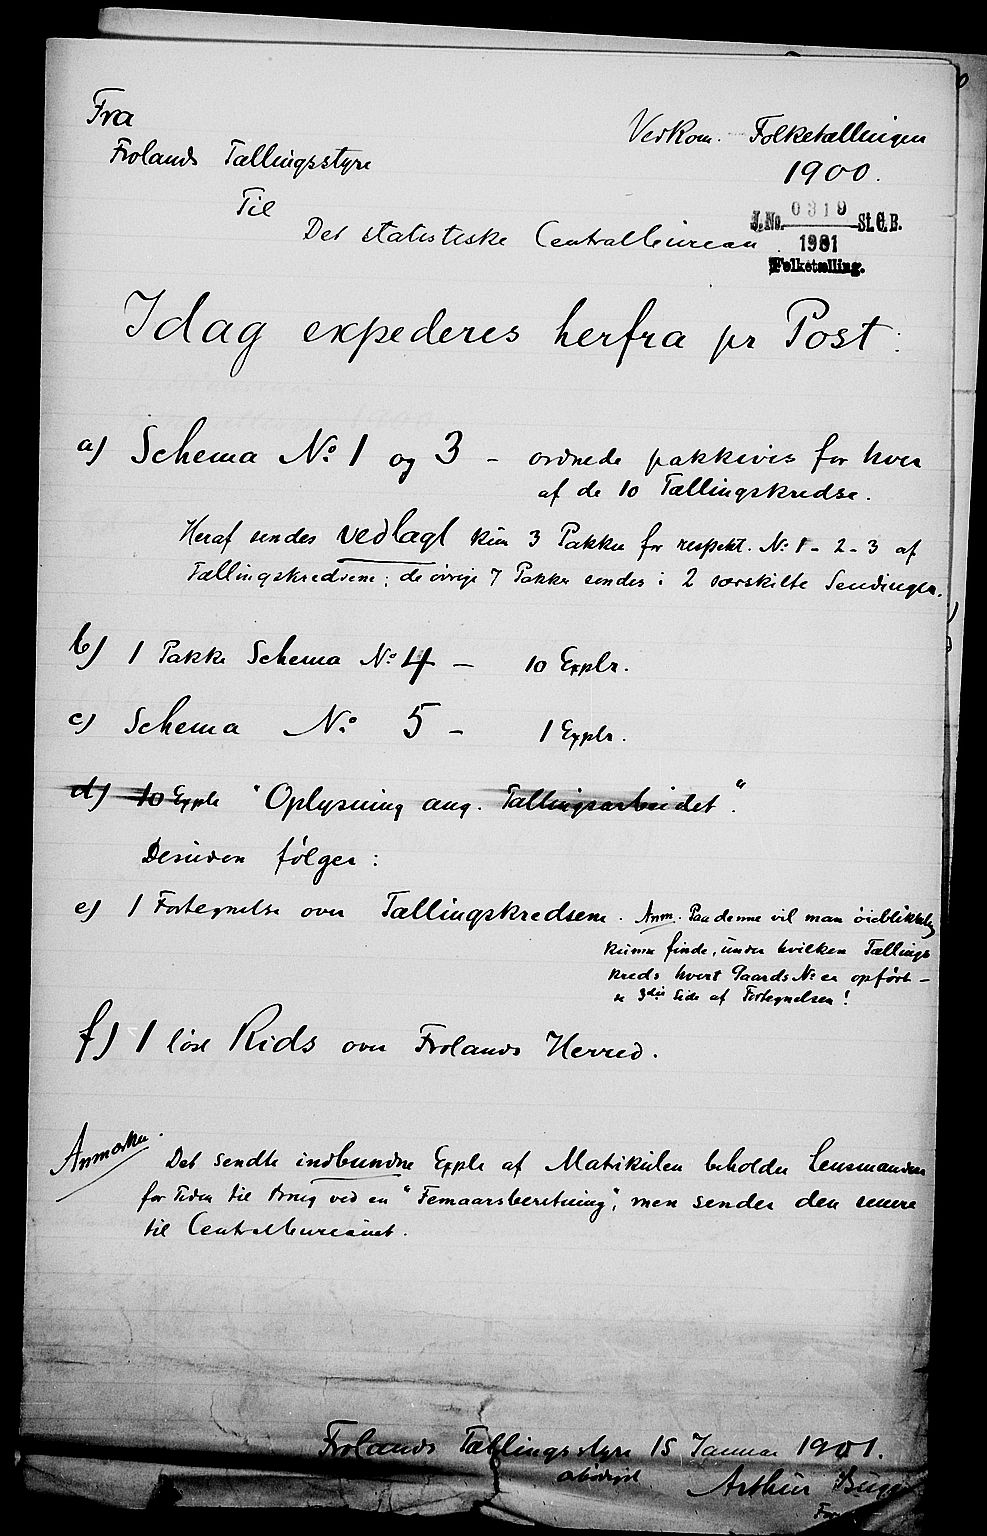 Fra
Frolands Tællingsstyre
Til
Det statistiske Centralbureau
Vedkom. Folketællingen
1900.
J.No. 0319 St.C.B.
1901
Folketælling.
Idag expederes herfra pr Post:
a) Schema No. 1 og 3 - ordnede pakkevis for hver
af de 10 Tællingskredse.
Heraf sendes vedlagt kun 3 Pakker for respekt. No. 1 - 2 - 3 af
Tællingskredsene; de øvrige 7 Pakker sendes i 2 særskilte Sendinger.
b) 1 Pakke Schema No. 4 - 10 Explr.
c) Schema No. 5 - 1 Explr.
d) 10 Exple "Oplysning ang. Tællingsarbeidet".
Desuden følger:
e) 1 Fortegnelse over Tællingskredsene. Anm. Paa denne vil man øieblikkelig
kunne finde, under hvilken Tællings
kreds hvert Gaards No er opført -
se 3die Side af Fortegnelsen!
f) 1 løst Rids over Frolands Herred.
Anmærkn.
Det sendte indbundne Exple af Matrikulen beholder Lensmanden
for Tiden til Brug ved en "Femaarsberetning", men sender den senere
til Centralbureauet.
Frolands Tællingsstyre 15 Januar 1901.
Arthur